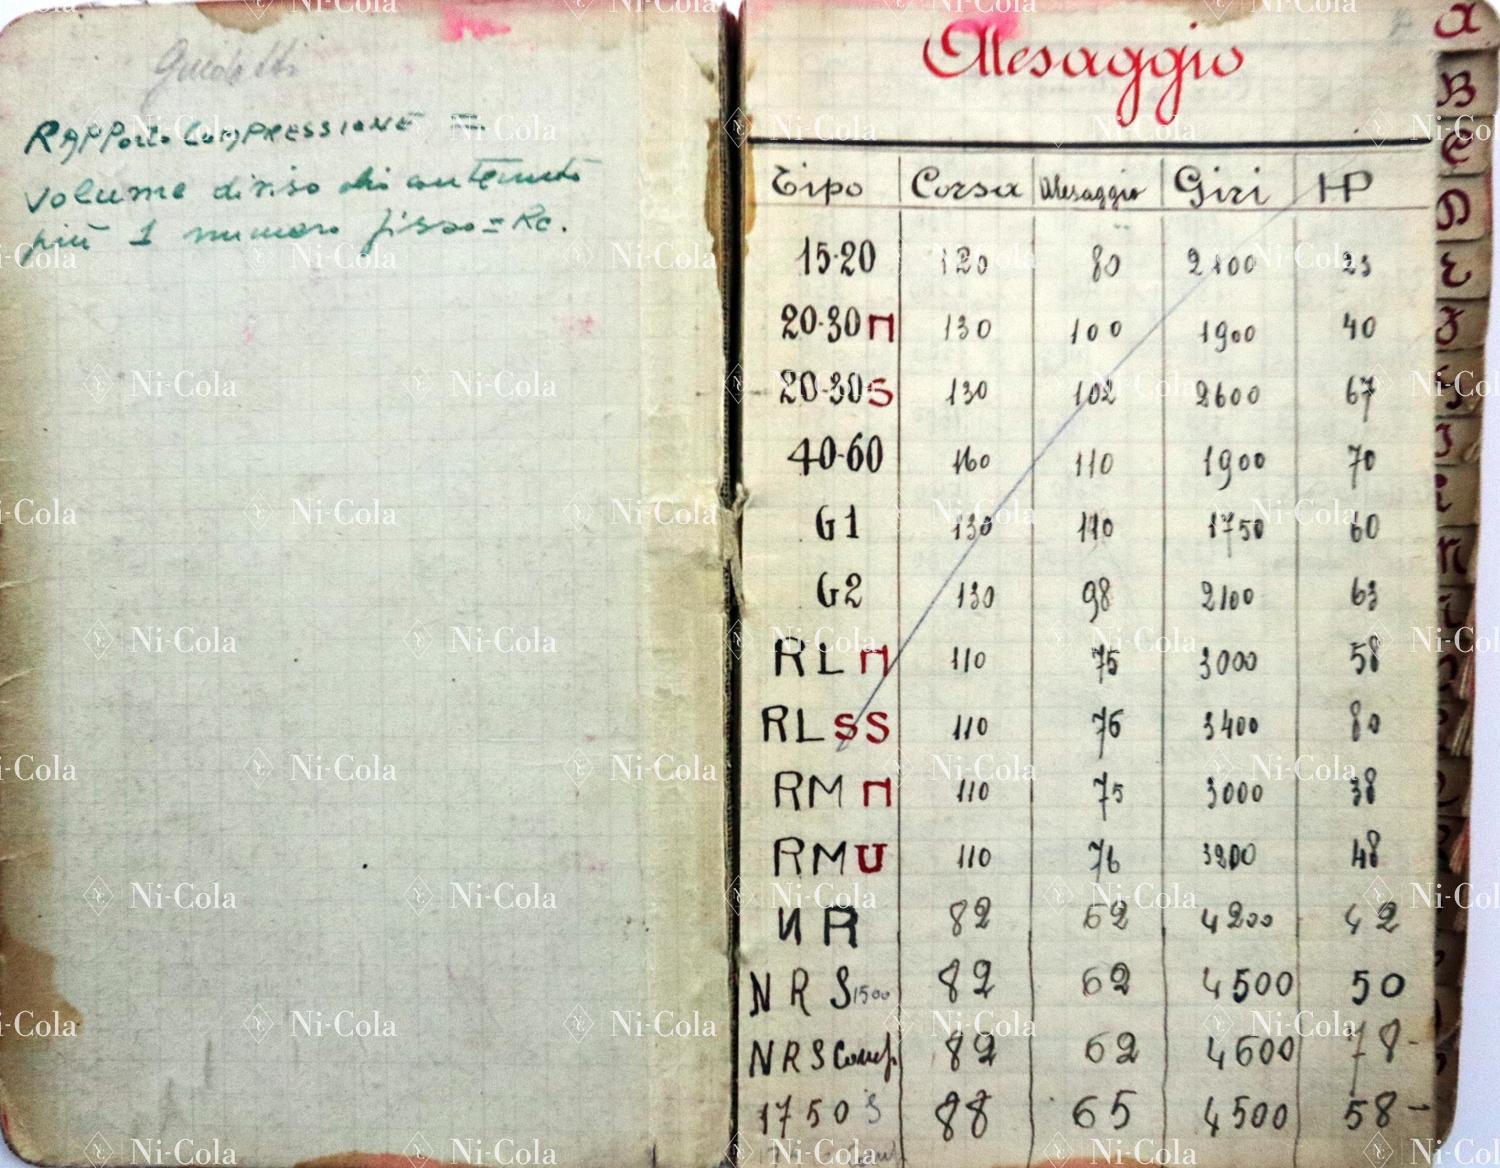 Guidotti
RAPPorto COMPRESSIONE =
Volume diviso contenuto
più 1 numero fisso = Rc.
Alesaggio
Tipo Corsa Alesaggio Giri HP
15-20 120 80 2400 23
20-30 M 130 100 1900 40
20-30 S 130 102 2600 67
40-60 160 110 1900 70
G1 130 110 1750 60
G2 130 98 2100 63
RL M 110 75 3000 58
RL SS 110 76 3400 80
RM M 110 75 3000 38
RM U 110 76 3200 48
NR 82 62 4200 42
NRS 1500 82 62 4500 50
NRS Comp. 82 62 4600 78-
1750 S 88 65 4500 58-
A
B
C
D
E
F
Ni-Cola